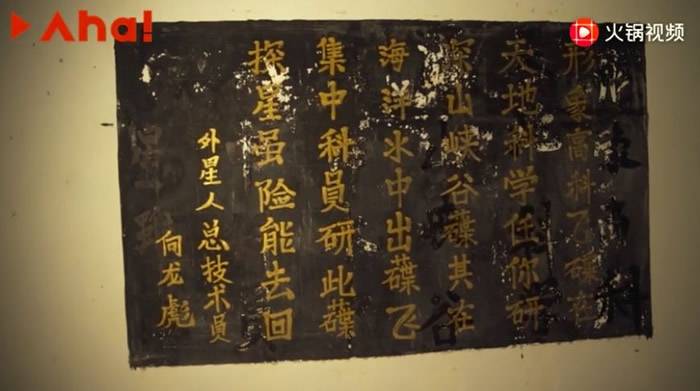 Aha!
火锅视频
形象高科飞碟在
天地科学任你研
深山峡谷碟其在
海洋水中出碟飞
集中科员研此碟
探星虽险能去回
外星人总技术员
向龙彪